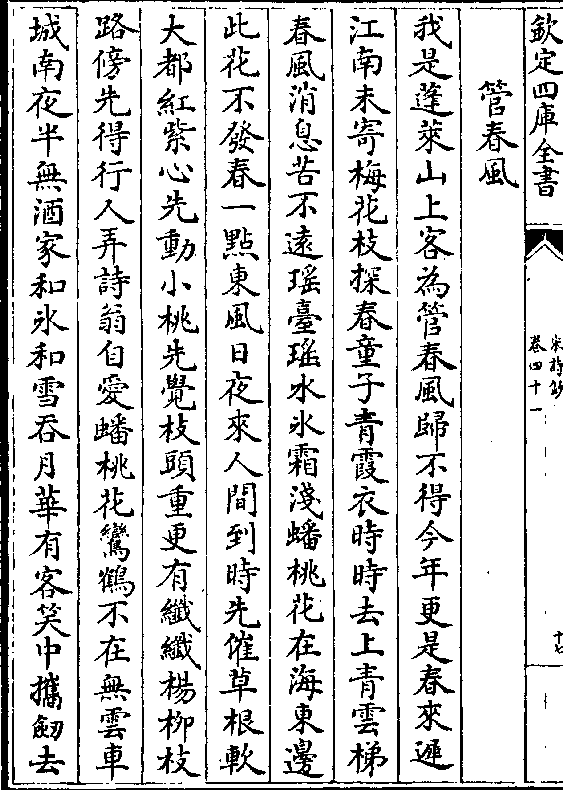 欽定四庫全書
宋詩鈔
卷四十一
十七
管春風
我是蓬萊山上客為管春風歸不得今年更是春來遲
江南未寄梅花枝探春童子青霞衣時時去上青雲梯
春風消息苦不遠瑶臺瑶水氷霜淺蟠桃花在海東邊
此花不發春一點東風日夜來人間到時先催草根軟
大都紅紫心先動小桃先覺枝頭重更有纖纖楊柳枝
路傍先得行人弄詩翁自愛蟠桃花鸞鶴不在無雲車
城南夜半無酒家和氷和雪吞月華有客笑中攜劒去